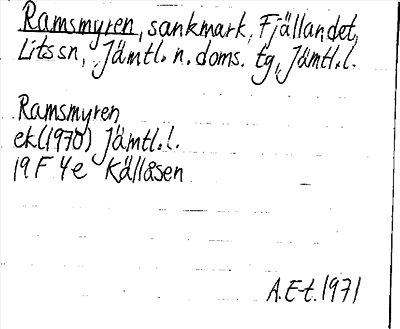 Ramsmyren, sankmark, Fjällandet,
Litssn, Jämtl. n. doms. tg, Jämtl.l.
Ramsmyren
ek(1970) Jämtl.l.
19 F 4e Källåsen
A.E-t. 1971